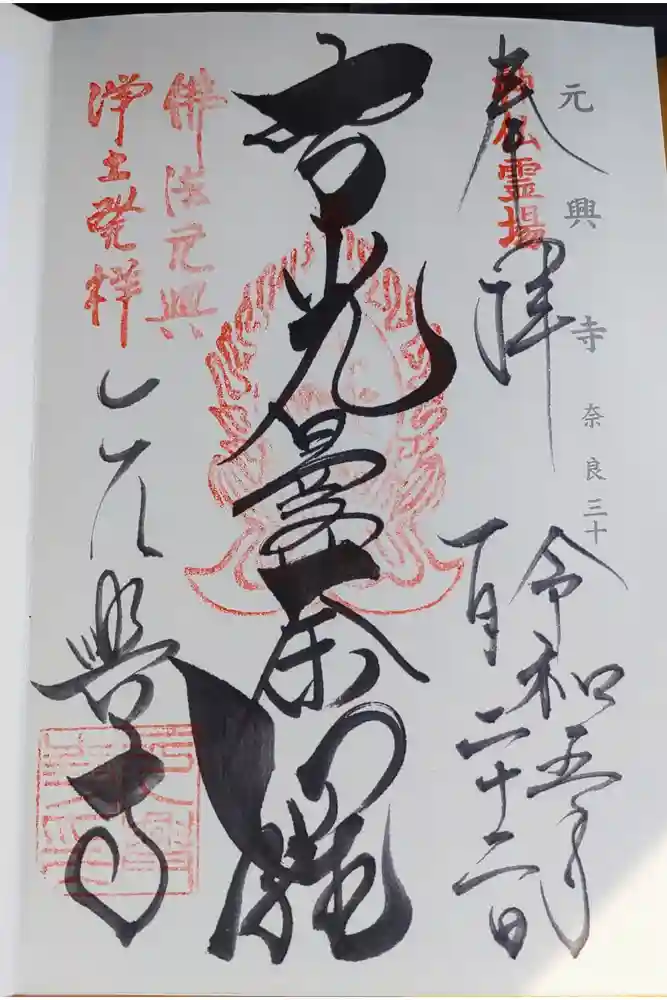 元興寺 奈良三十
神仏霊場
奉拝
令和五年
一月二十二日
智光曼荼羅
佛法元興
浄土発祥
元興寺